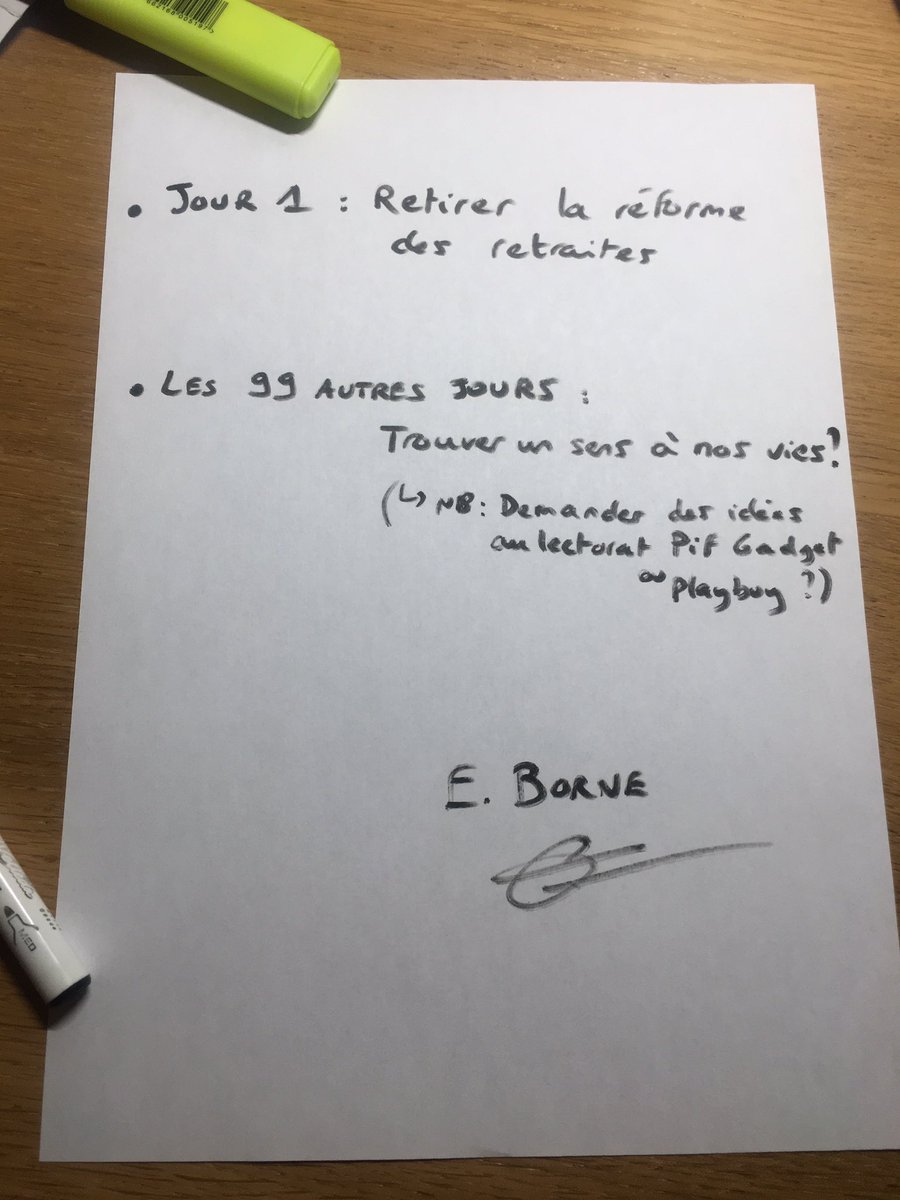 • JOUR 1 : Retirer la réforme
des retraites
• LES 99 AUTRES JOURS :
Trouver un sens à nos vies?
(↳ NB: Demander des idées
au lectorat Pif Gadget
ou Playboy ?)
E. BORNE
MED